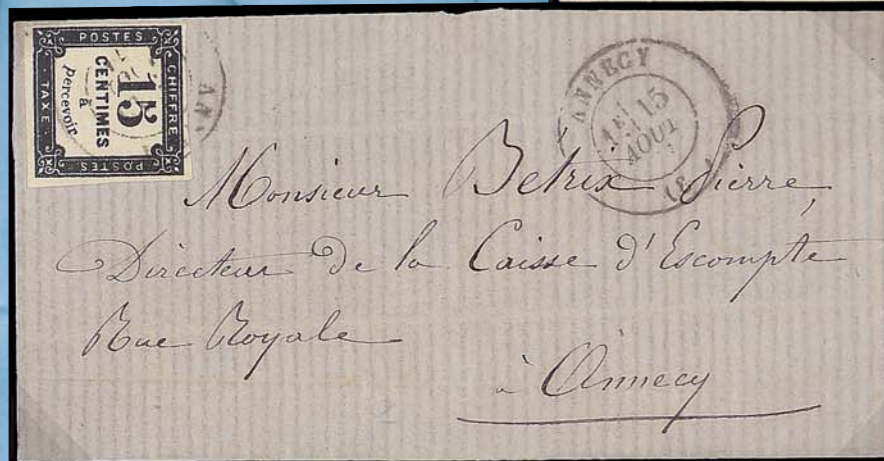 POSTES
CHIFFRE
TAXE
POSTES
15
CENTIMES
à
percevoir
ANNECY
1E
15
AOUT
Monsieur Betrix Pierre
Directeur de la Caisse d'Escompte
Rue Royale
à Annecy